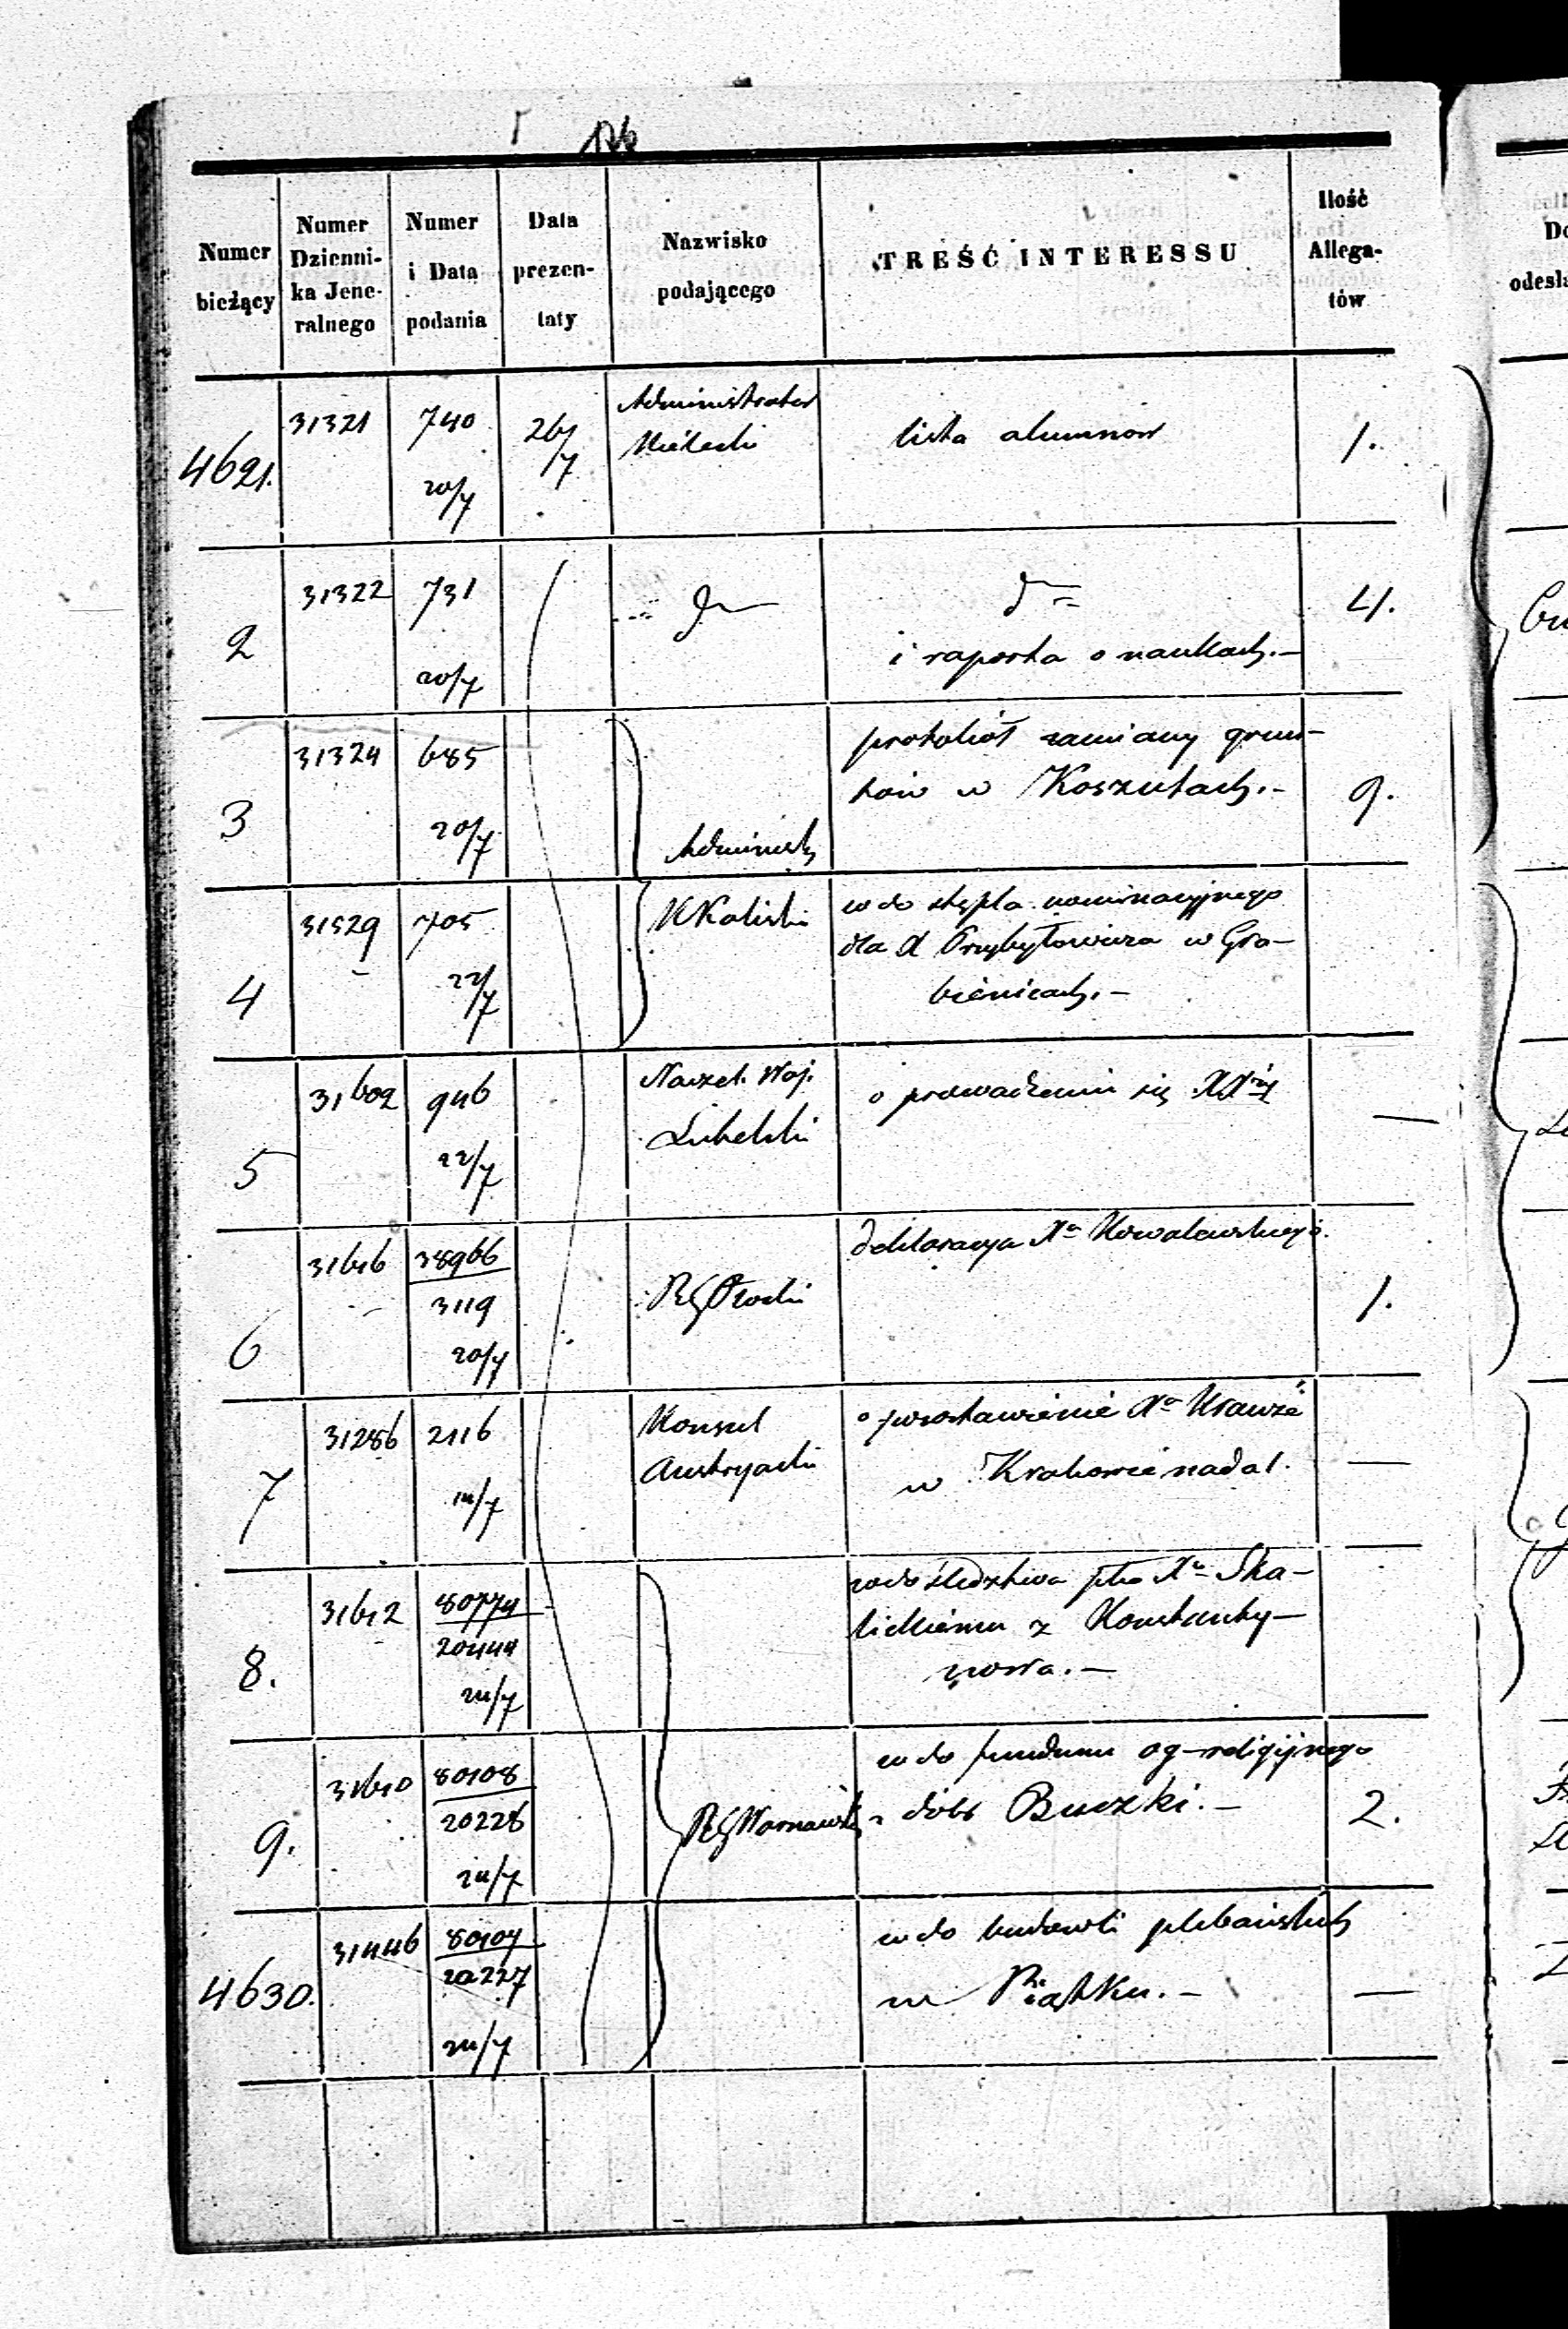 126
Numer bieżący
Numer Dzienni- ka Jene- ralnego
Numer i Data podania
Data prezen- taty
Nazwisko podającego
TREŚĆ INTERESSU
Ilość Allega- tów
4621. 31321 740 20/7 26/7 Administrator Kielecki lista alumnow 1.
2 31322 731 20/7 d° d°
i raporta o naukach.— 4.
3 31324 685 20/7 protokół zamiany grun-
tów w Koszutach.— 9.
Administr
4 31529 705 22/7 KKaliski wdo stępla nominacyjnego
dla X Przybyłowicza w Gra-
bienicach.—
5 31602 946 22/7 Naczel. Woj. Lubelski o prowadzeniu się XXży —
6 31616 38966 3119 20/7 RGPłocki deklaracya Xa Kowalewskiego. 1.
7 31286 2116 Konsul Austryacki o pozostawienie Xa Krauze
w Krakowie nadal. —
8. 31612 80774 20444 21/7 wdo śledztwa pko Xu Ska-
lickiemu z Konstanty-
nowa.—
9. 31610 80108 20228 21/7 RGWarszawski wdo funduszu og-religijnego
z dóbr Buczki.— 2.
4630. 31446 80107 20227 21/7 wdo budowli plebańskich
w Piątku.— —